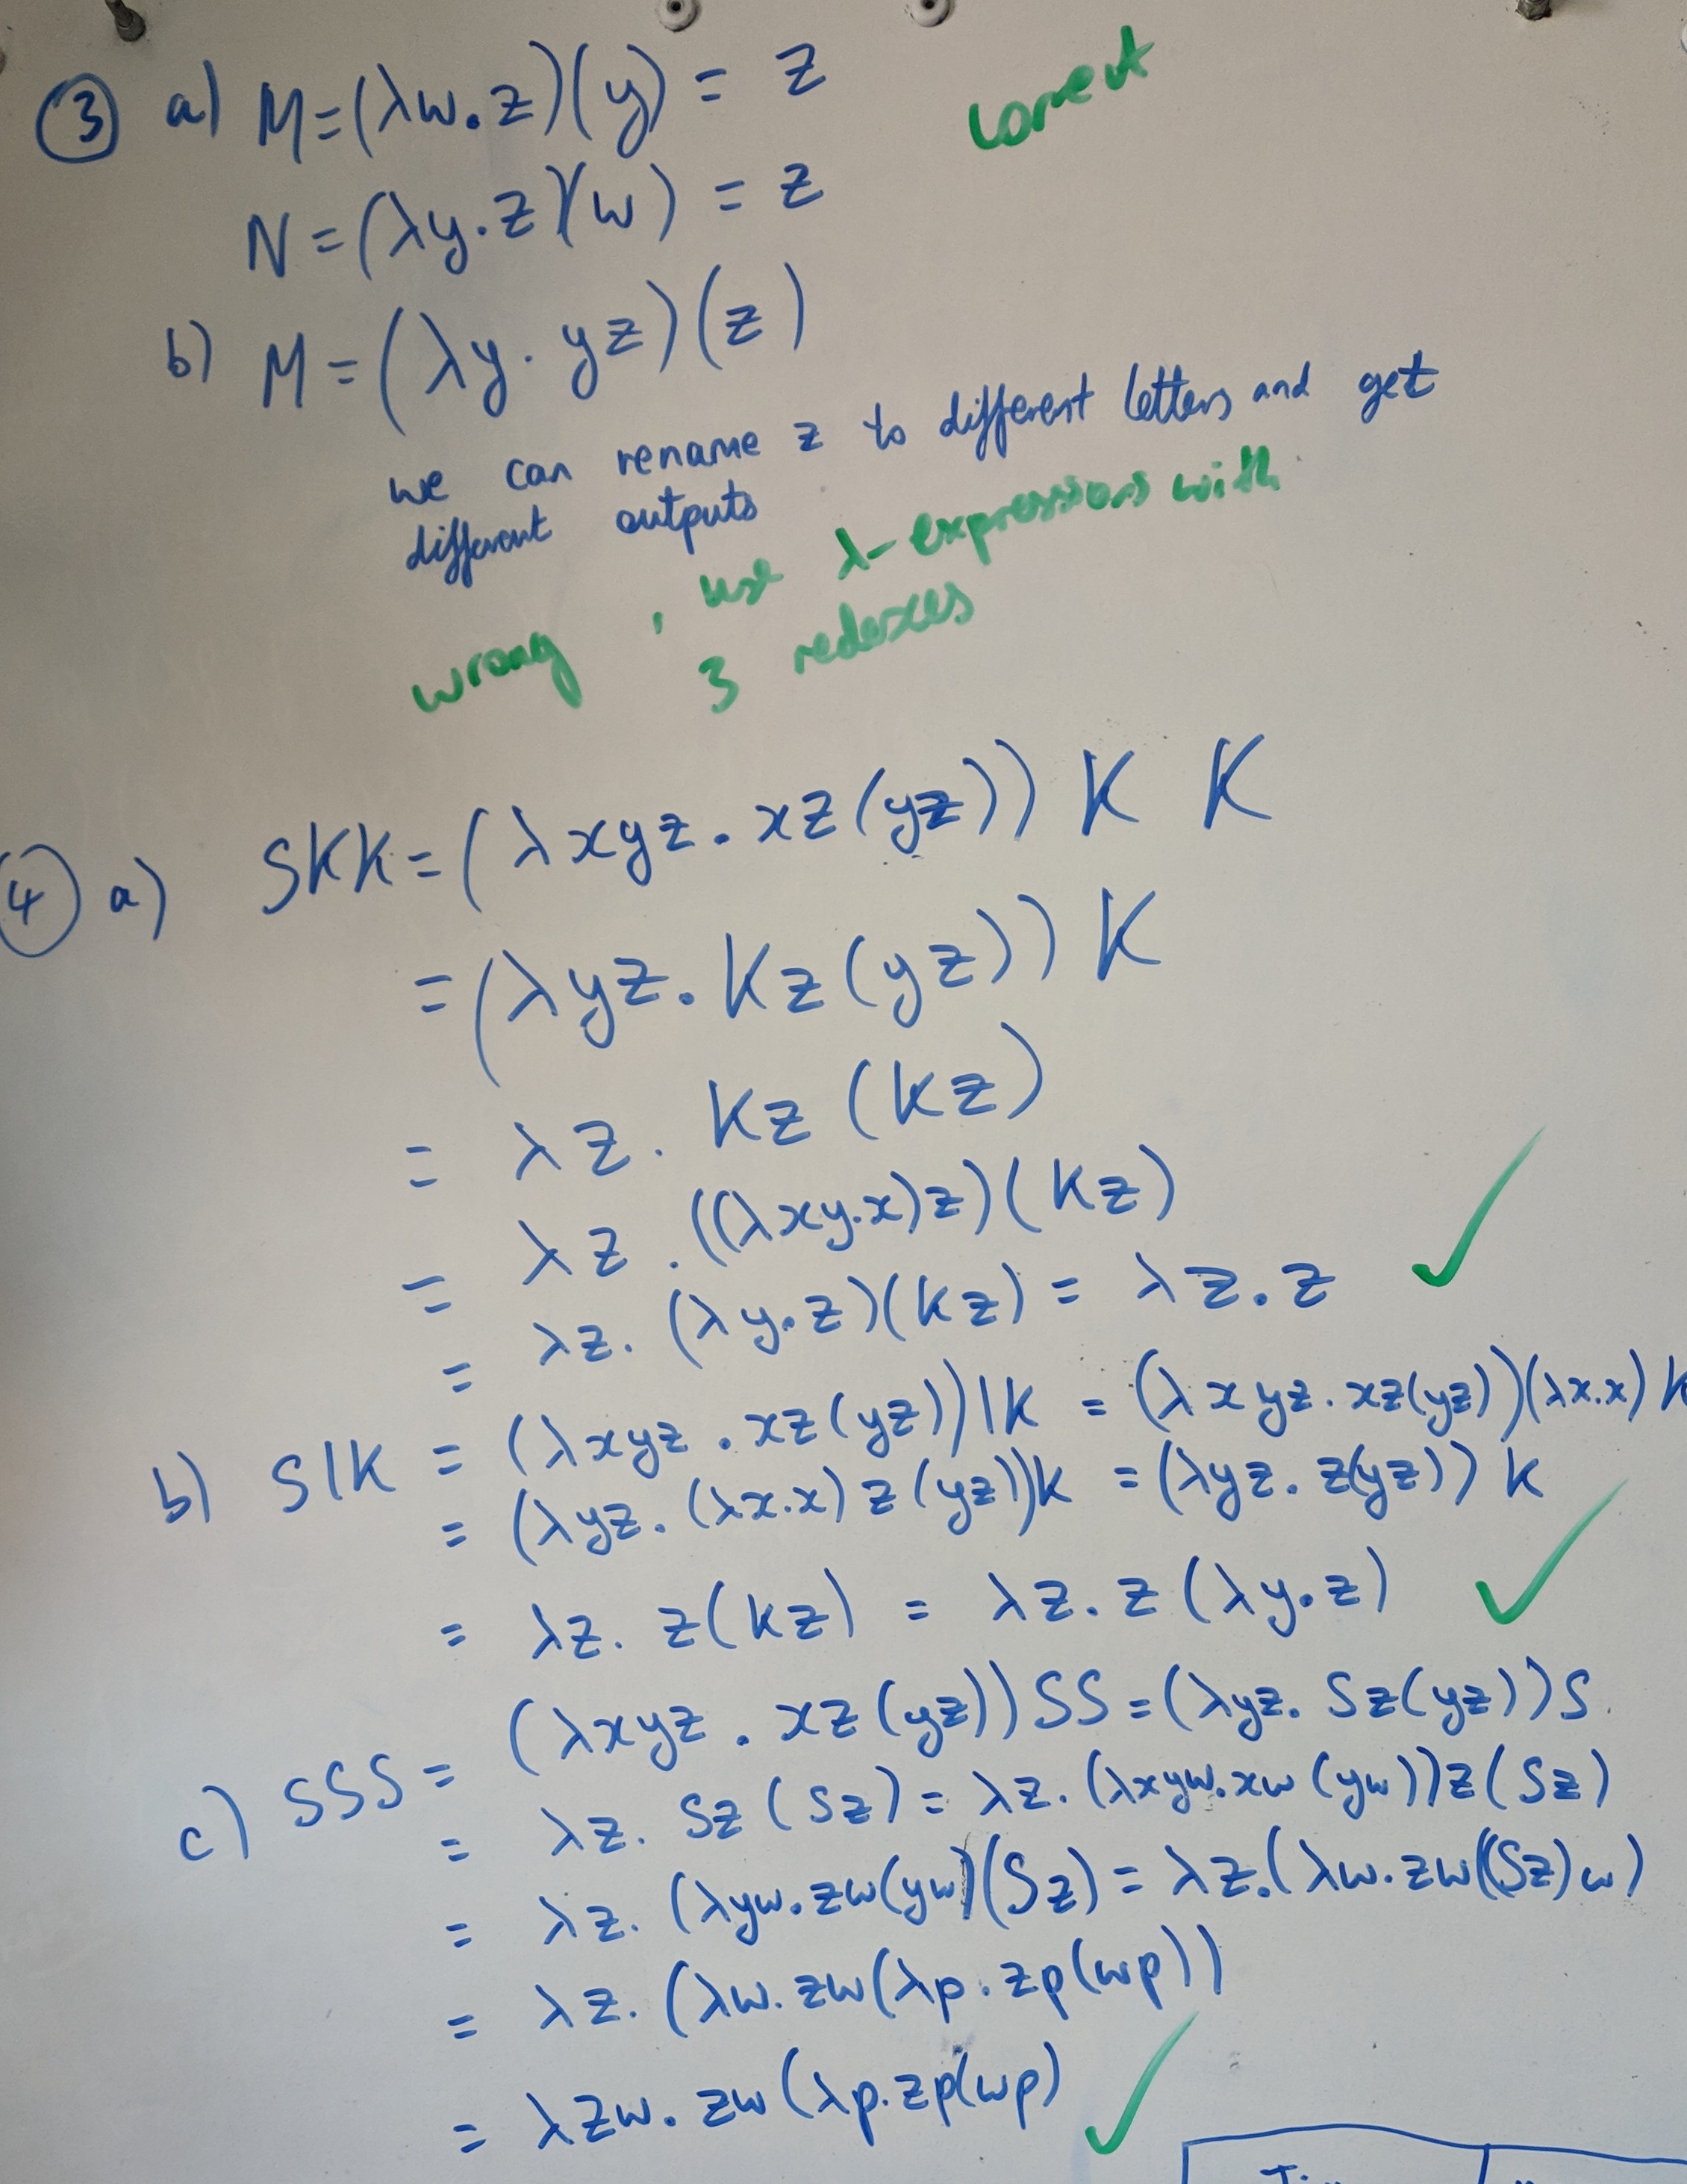 ③ a) M=(λw.z)(y) = z correct
N=(λy.z)(w) = z
b) M=(λy.yz)(z)
we can rename z to different letters and get
different outputs
wrong, use λ-expressions with
3 redexes
④ a) SKK=(λxyz.xz(yz)) K K
=(λyz.Kz(yz)) K
= λz. Kz (Kz)
= λz.((λxy.x)z)(Kz)
= λz.(λy.z)(Kz) = λz.z ✓
b) SIK = (λxyz.xz(yz))IK = (λxyz.xz(yz))(λx.x)K
= (λyz.(λx.x)z(yz))K = (λyz.z(yz))K
= λz. z(Kz) = λz. z(λy.z) ✓
c) SSS = (λxyz.xz(yz))SS=(λyz.Sz(yz))S
= λz. Sz(Sz) = λz.(λxyw.xw(yw))z(Sz)
= λz.(λyw.zw(yw)(Sz) = λz.(λw.zw((Sz)w)
= λz.(λw.zw(λp.zp(wp))
= λzw.zw(λp.zp(wp) ✓